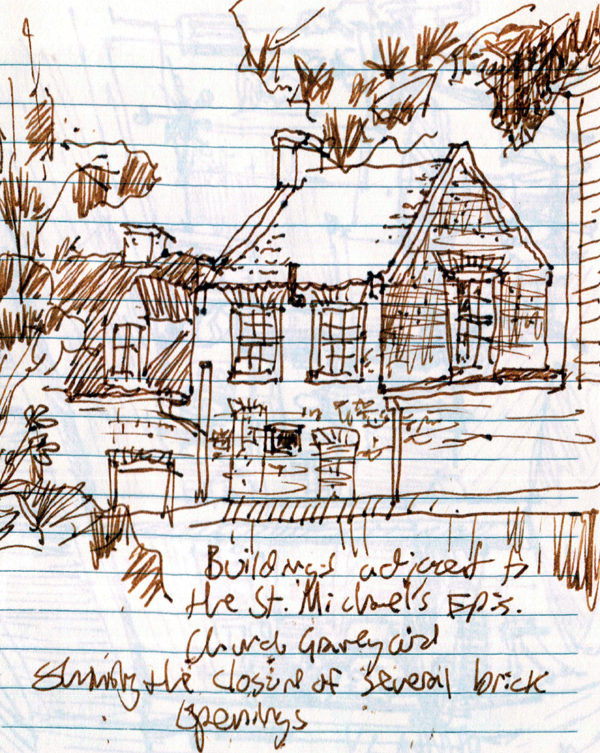 Buildings adjacent to
the St. Michael's Epis.
Church Graveyard
Showing the closure of several brick
openings